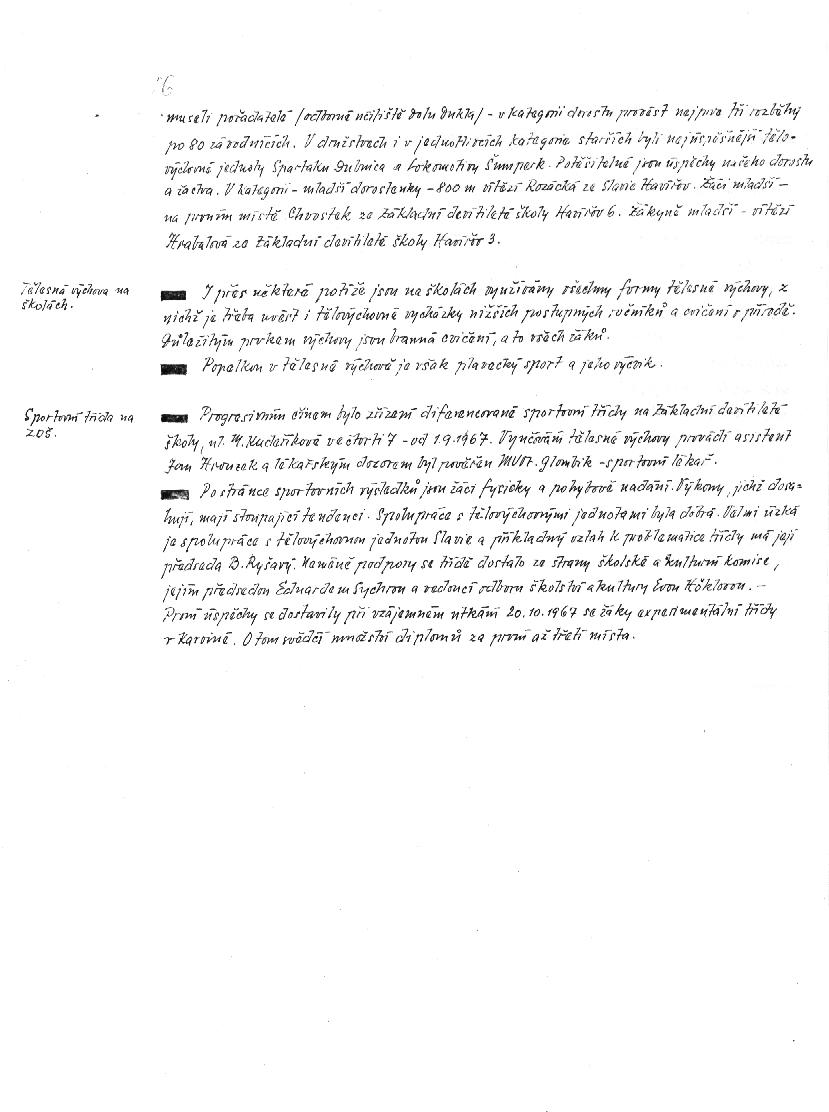 76
museli pořadatelé /odborné učiliště Dolu Dukla/ - v kategorii dorostu provést nejprve tři rozběhy
po 80 závodnících. V družstvech i v jednotlivcích kategorie starších byli nejúspěšnější tělo-
výchovné jednoty Spartaku Dubnica a Lokomotivy Šumperk. Potěšitelné jsou úspěchy našeho dorostu
a žactva. V kategorii - mladší dorostenky - 800 m vítězí Rozácká ze Slavie Havířov. Žáci mladší -
na prvním místě Chvostek ze základní devítileté školy Havířov 6. Žákyně mladší - vítězí
Hrabalová ze základní devítileté školy Havířov 3.
Tělesná výchova na
školách.
I přes některé potíže jsou na školách využívány všechny formy tělesné výchovy, z
nichž je třeba uvést i tělovýchovné vycházky nižších postupných ročníků a cvičení v přírodě.
Důležitým prvkem výchovy jsou branná cvičení, a to všech žáků.
Popelkou v tělesné výchově je však plavecký sport a jeho výcvik.
Sportovní třída na
ZDŠ.
Progresivním činem bylo zřízení diferencované sportovní třídy na základní devítileté
školy, ul. M. Kudeříkové ve čtvrti 7 - od 1.9.1967. Vyučování tělesné výchovy provádí asistent
Jan Hrouzek a lékařským dozorem byl pověřen MUDr. Glombik - sportovní lékař.
Po stránce sportovních výsledků jsou žáci fysicky a pohybově nadáni. Výkony, jichž dosa-
hují, mají stoupající tendenci. Spolupráce s tělovýchovnými jednotami byla dobrá. Velmi úzká
je spolupráce s tělovýchovnou jednotou Slavie a příkladný vztah k problematice třídy má její
předseda B. Ryšavý. Neméně podpory se třídě dostalo ze strany školské a kulturní komise,
jejím předsedou Eduardem Sychrou a vedoucí odboru školství a kultury Evou Höklovou. -
První úspěchy se dostavily při vzájemném utkání 20.10.1967 se žáky experimentální třídy
v Karviné. O tom svědčí množství diplomů za první až třetí místa.